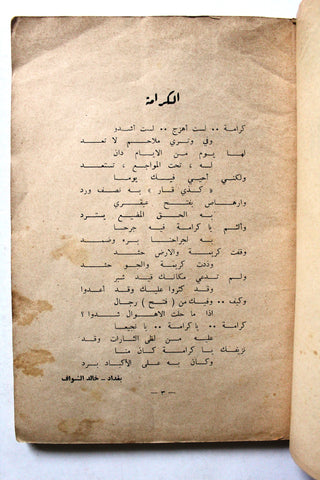 الكرامة
كرامة .. لست أهزج .. لست أشدو
وفي وتري ملاحم لا تعد
لها يوم من الايام دان
له ، تحت المواجع ، تستعد
ولكني أحيي فيك يوما
« كذي قار » به نصف ورد
وارهاص بفتح عبقري
به الحق المضيع يسترد
وألثم يا كرامة فيه جرحا
به لجراحنا برء وضمد
وقفت كريمة والارض حشد
وذدت كريمة والجو حشد
ولم تدمي مكانك قيد شبر
وقد كثروا عليك وقد أعدوا
وكيف .. وفيك من ( فتح ) رجال
اذا ما حلت الاهوال شدوا ؟
كرامة .. يا كرامة .. يا نجيعا
عليه من لظى الثارات وقد
نزيفك يا كرامة كان منا
وكان به على الأكباد برد
بغداد - خالد الشواف
- ٣ -